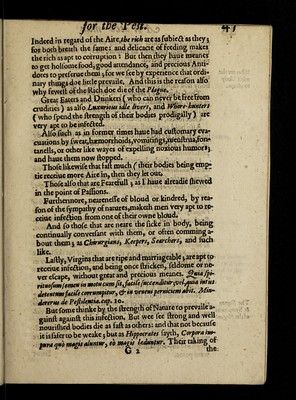 for the Pest. 41
Indeed in regard of the Aire, the rich are as subiect as they;
for both breath the same: and delicacie of feeding makes
the rich as apt to corruption: But then they haue meanes
to get holsome food, good attendance, and precious Anti-
dotes to preserue them; for we see by experience that ordi-
nary things doe little preuaile, And this is the reason also
why fewest of the Rich doe die of the Plague.
Great Eaters and Drinkers (who can neuer be free from
crudities) as also Luxurious idle livers, and Whore-hunters
(who spend the strength of their bodies prodigally) are
very apt to be infected.
Also such as in former times haue had customary eva-
cuations by sweat, hæmorrhoids, vomitings, menstrua, fon-
tanells, or other like wayes of expelling noxious humors;
and haue them now stopped.
Those likewise that fast much (their bodies being emp-
tie receiue more Aire in, then they let out.
Those also that are Fearefull; as I haue alreadie shewed
in the point of Passions.
Furthermore, nearenesse of bloud or kindred, by rea-
son of the sympathy of natures, maketh men very apt to re-
ceiue infection from one of their owne bloud.
And so those that are neare the sicke in body, being
continually conversant with them, or often comming a-
bout them; as Chirurgians, Keepers, Searchers, and such
like.
Lastly, Virgins that are ripe and marriageable, are apt to
receiue infection, and being once stricken, seldome or ne-
ver escape, without great and precious meanes. Quia spi-
rituosum semen in motu cum sit, facile succenditur; vel, quia intus
detentum facile corrumpitur, & in veneni perniciem abit. Min-
dererus de Pestilentia. cap. 10.
But some thinke by the strength of Nature to prevaile a-
gainst against this infection. But wee see strong and well
nourished bodies die as fast as others: and that not because
it is safer to be weake; but as Hippocrates sayth, Corpora im-
pura quò magis aluntur, eò magis leduntur. Their taking of
G 2 the